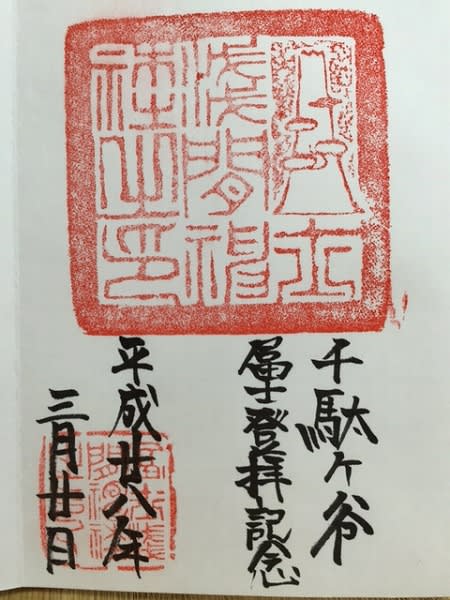 冨士
淺間神
社之印
千駄ヶ谷
冨士登拝記念
平成廿八年
三月廿日